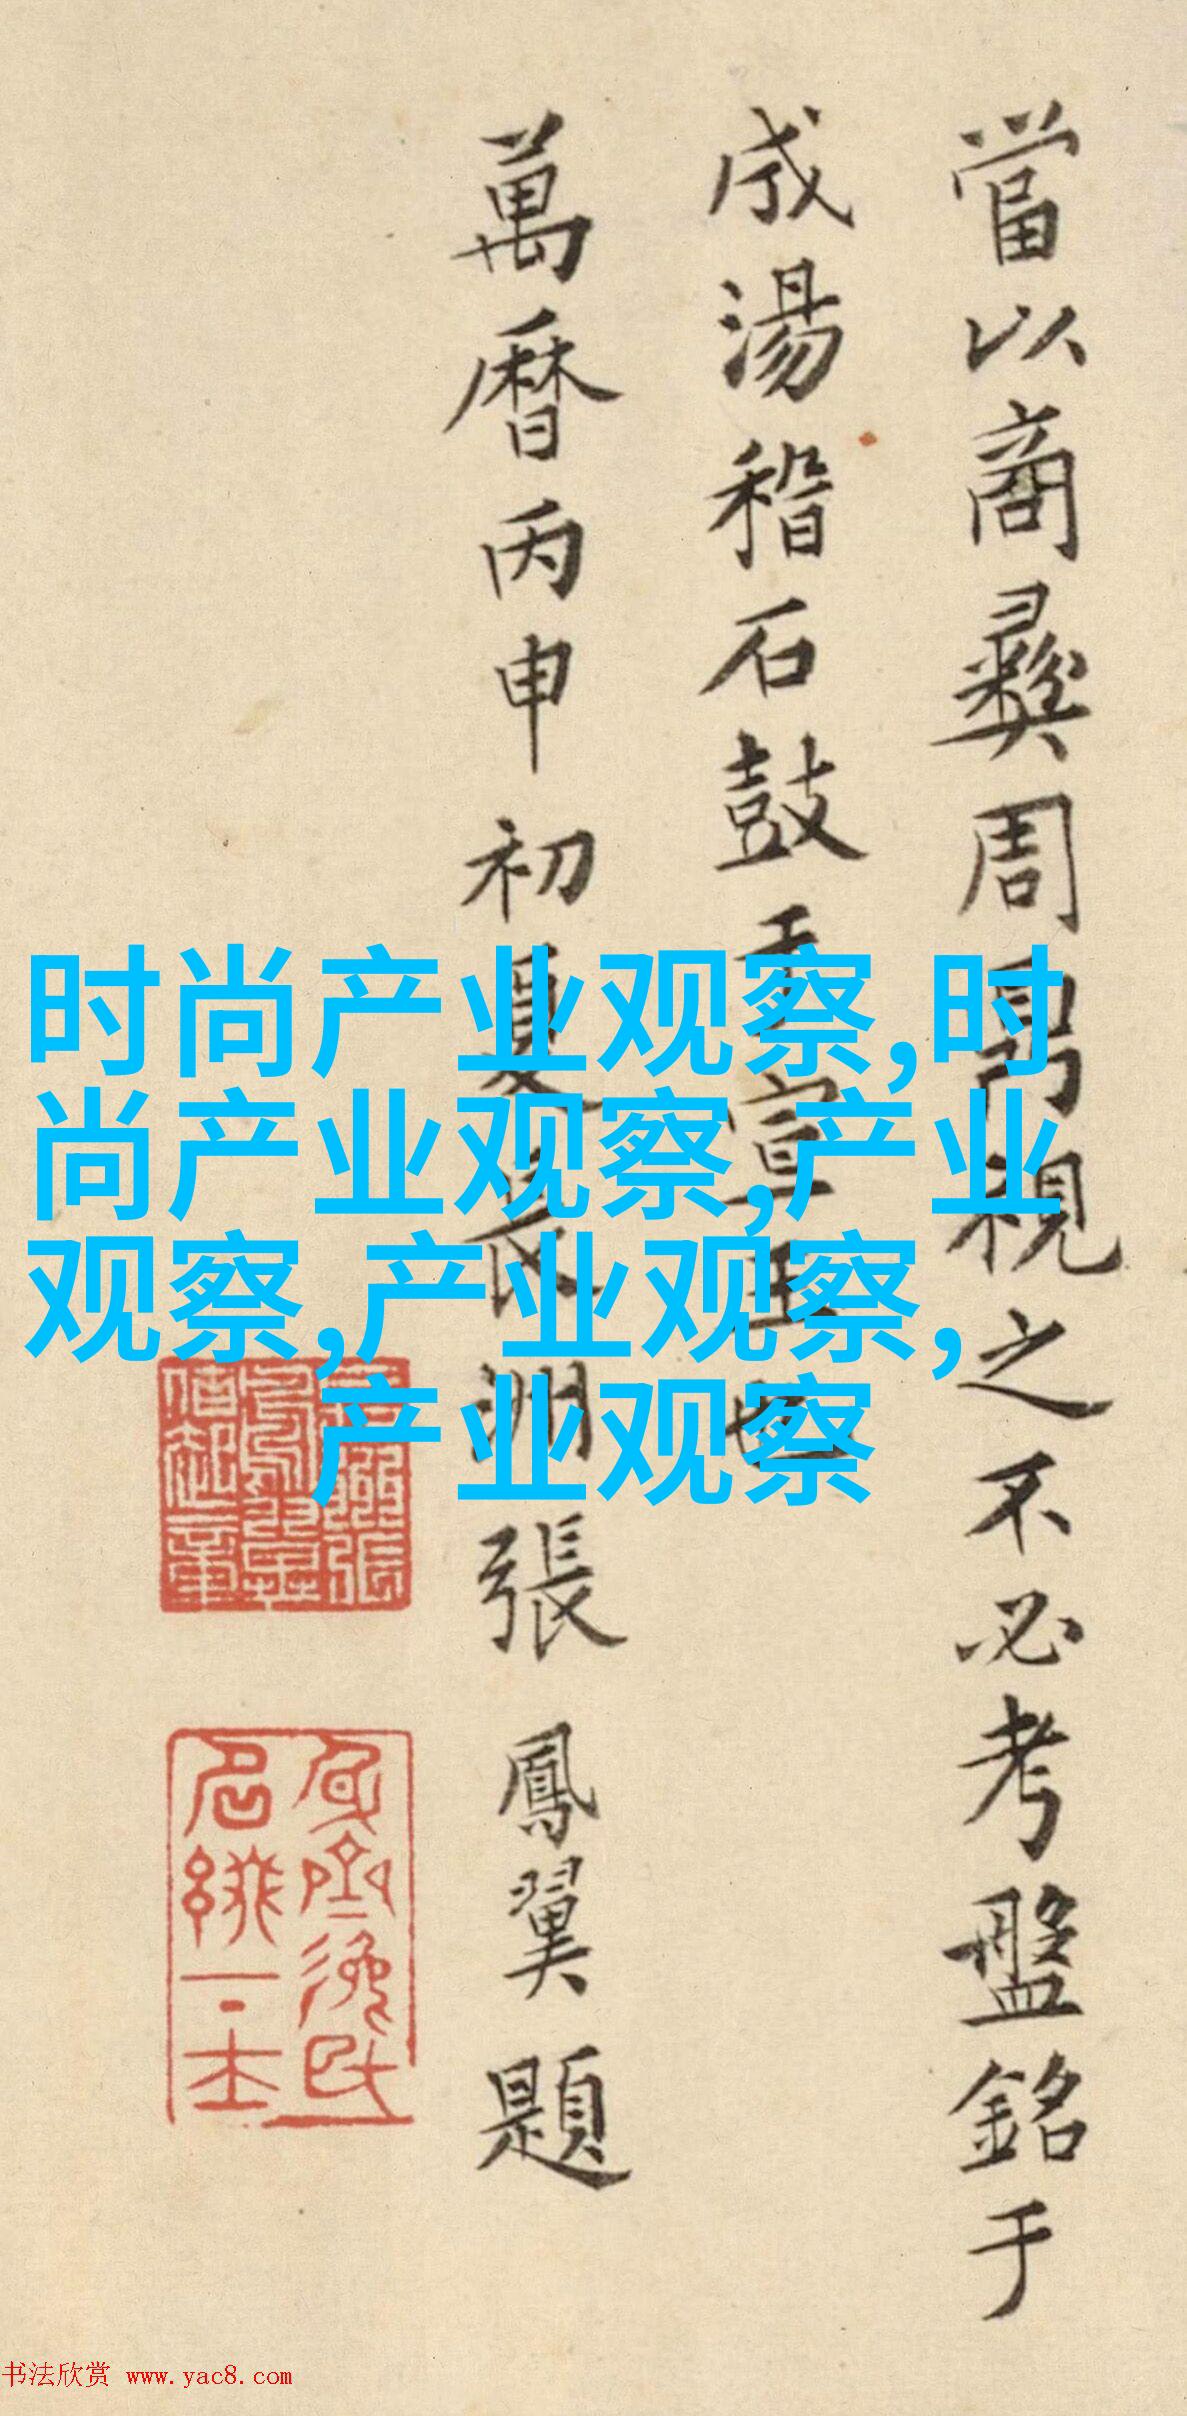 當以商彝周鼎視之不必考盤銘于
成湯稽石鼓于宣王也
萬曆丙申初夏長洲張鳳翼題
时尚产业观察,时
尚产业观察,产业
观察,产业观察,
产业观察
书法欣赏 www.yac8.com